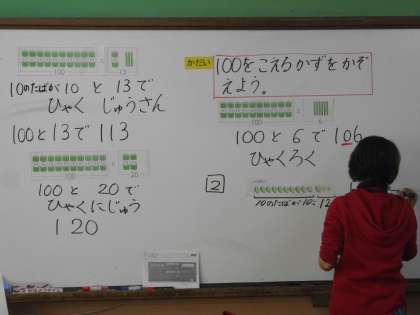 100
13
10のたばが10 と 13で
ひゃく じゅうさん
100と13で 113
100
20
100と 20で
ひゃくにじゅう
120
かだい
100をこえるかずをかぞ
えよう。
100
100と 6で 106
ひゃくろく
2
10のたばが10こ 12